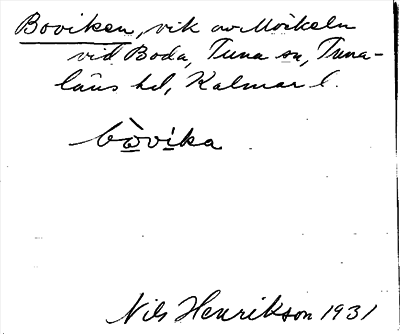 Boviken, vik av Möckeln
vid Boda, Tuna sn, Tuna-
läns hd, Kalmar l.
bòvíka
Nils Henrikson 1931